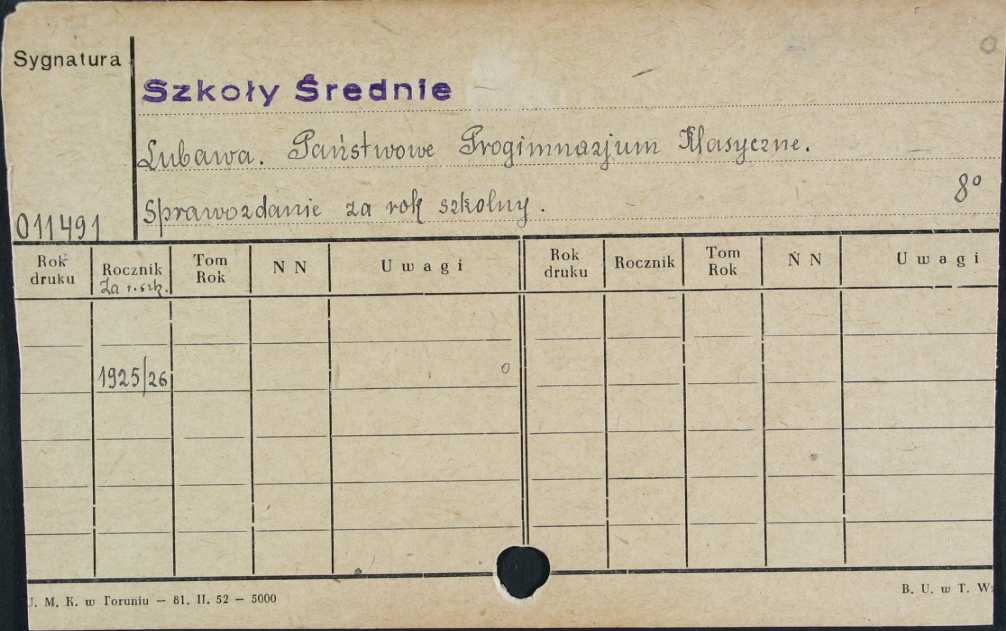 Sygnatura
Szkoły Średnie
Lubawa. Państwowe Progimnazjum Klasyczne.
Sprawozdanie za rok szkolny. 8°
011491
Rok druku Rocznik Tom Rok N N Uwagi Rok druku Rocznik Tom Rok N N Uwagi
Za r. szk.
1925/26
U. M. K. w Toruniu — 81. II. 52 — 5000 B. U. w T. W